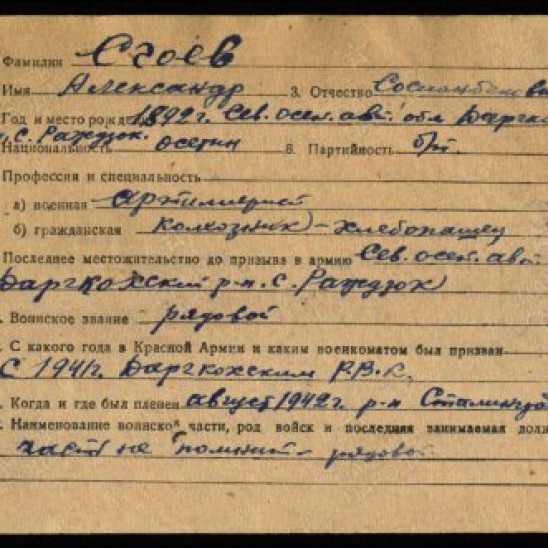 Фамилия Сгоев
Имя Александр 3. Отчество
Год и место рожд 1892 г. Сев. осет. авт. обл Даргко
с. Раждзок.
Национальность осетин 6. Партийность б/п.
Профессия и специальность
а) военная артиллерист
б) гражданская колхозник-хлебопашец
Последнее местожительство до призыва в армию Сев. осет. авт.
Даргкохский р-н. с. Раждзок
. Воинское звание рядовой
. С какого года в Красной Армии и каким военкоматом был призван
С 1941г. Даргкохским Р.В.К.
. Когда и где был пленен август 1942г. р-н Сталингра
. Наименование воинской части, род войск и последняя занимаемая долж
часть не помнит - рядовой